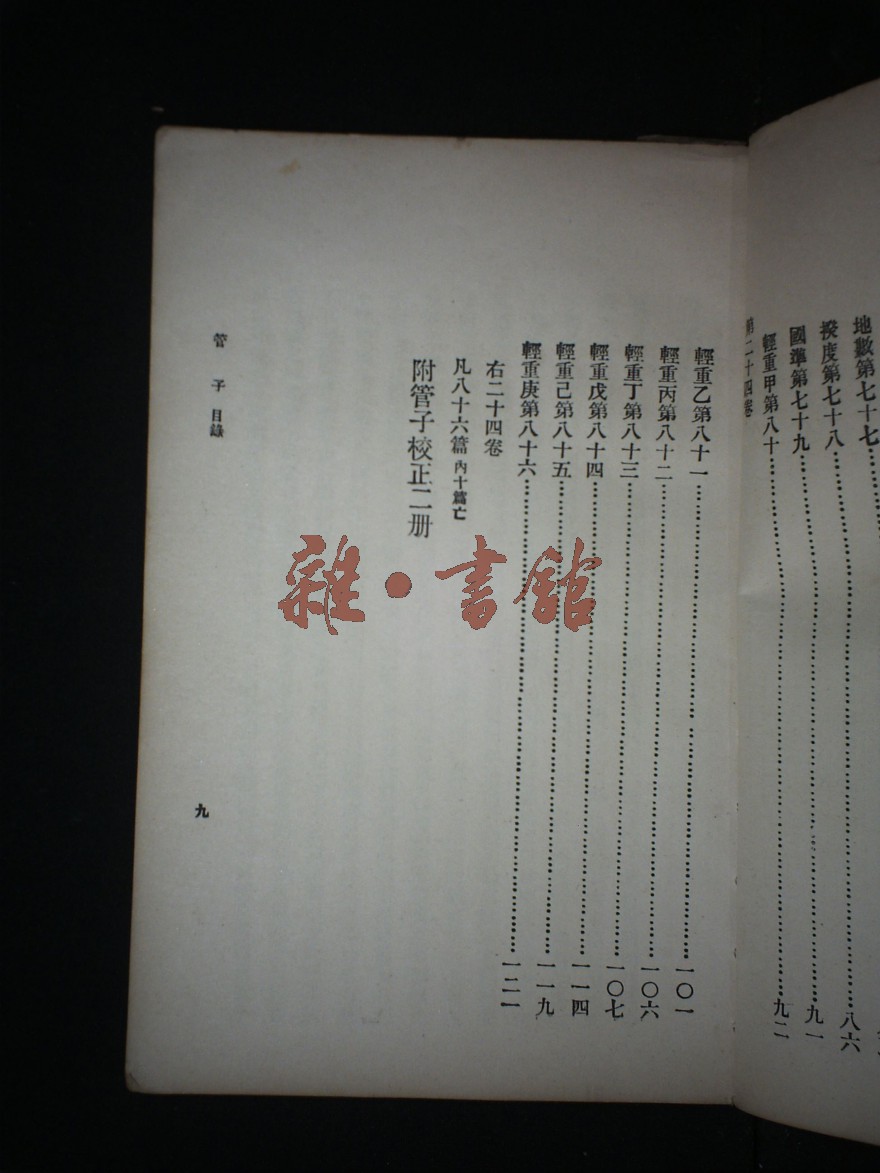 地數第七十七
揆度第七十八……八六
國準第七十九……九一
輕重甲第八十……九二
第二十四卷
輕重乙第八十一……一〇一
輕重丙第八十二……一〇六
輕重丁第八十三……一〇七
輕重戊第八十四……一一四
輕重己第八十五……一一九
輕重庚第八十六……一二一
右二十四卷
凡八十六篇 內十篇亡
附管子校正二册
管子 目錄
九
雜·書館